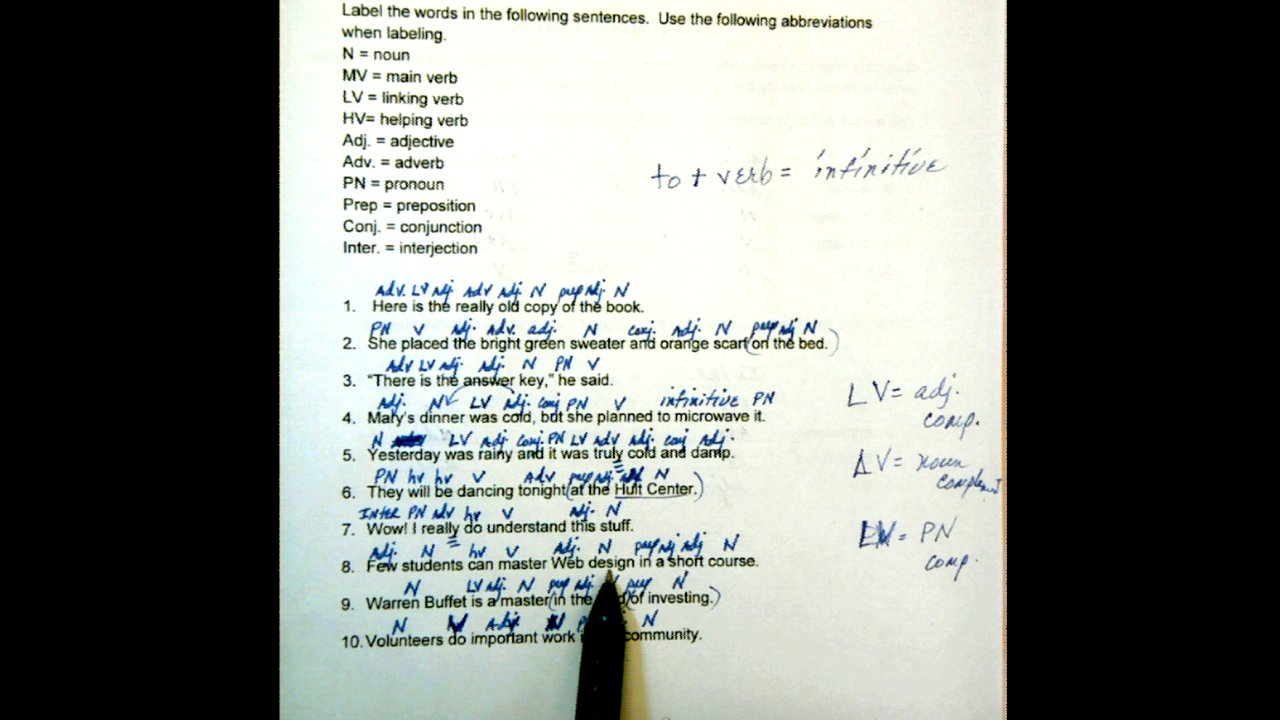 Label the words in the following sentences. Use the following abbreviations
when labeling.
N = noun
MV = main verb
LV = linking verb
HV= helping verb
Adj. = adjective
Adv. = adverb
to + verb = infinitive
PN = pronoun
Prep = preposition
Conj. = conjunction
Inter. = interjection
Adv. LV Adj. Adv Adj. N prep Adj. N
1. Here is the really old copy of the book.
PN V Adj. Adv. adj. N conj. Adj. N prep adj N
2. She placed the bright green sweater and orange scarf (on the bed.)
Adv LV Adj. Adj. N PN V
3. "There is the answer key," he said.
LV = adj. comp.
Adj. N LV Adj. conj PN V infinitive PN
4. Mary's dinner was cold, but she planned to microwave it.
N LV Adj conj. PN LV adv adj. conj Adj.
5. Yesterday was rainy and it was truly cold and damp.
LV = noun
PN hv hv V Adv prep adj N
6. They will be dancing tonight (at the Hult Center.)
INTER PN adv hv V adj. N
7. Wow! I really do understand this stuff.
= PN comp.
Adj. N hv V Adj. N prep adj adj N
8. Few students can master Web design in a short course.
N LV adj. N prep adj. prep N
9. Warren Buffet is a master (in the (of investing.)
N V Adj. N N
10. Volunteers do important work community.